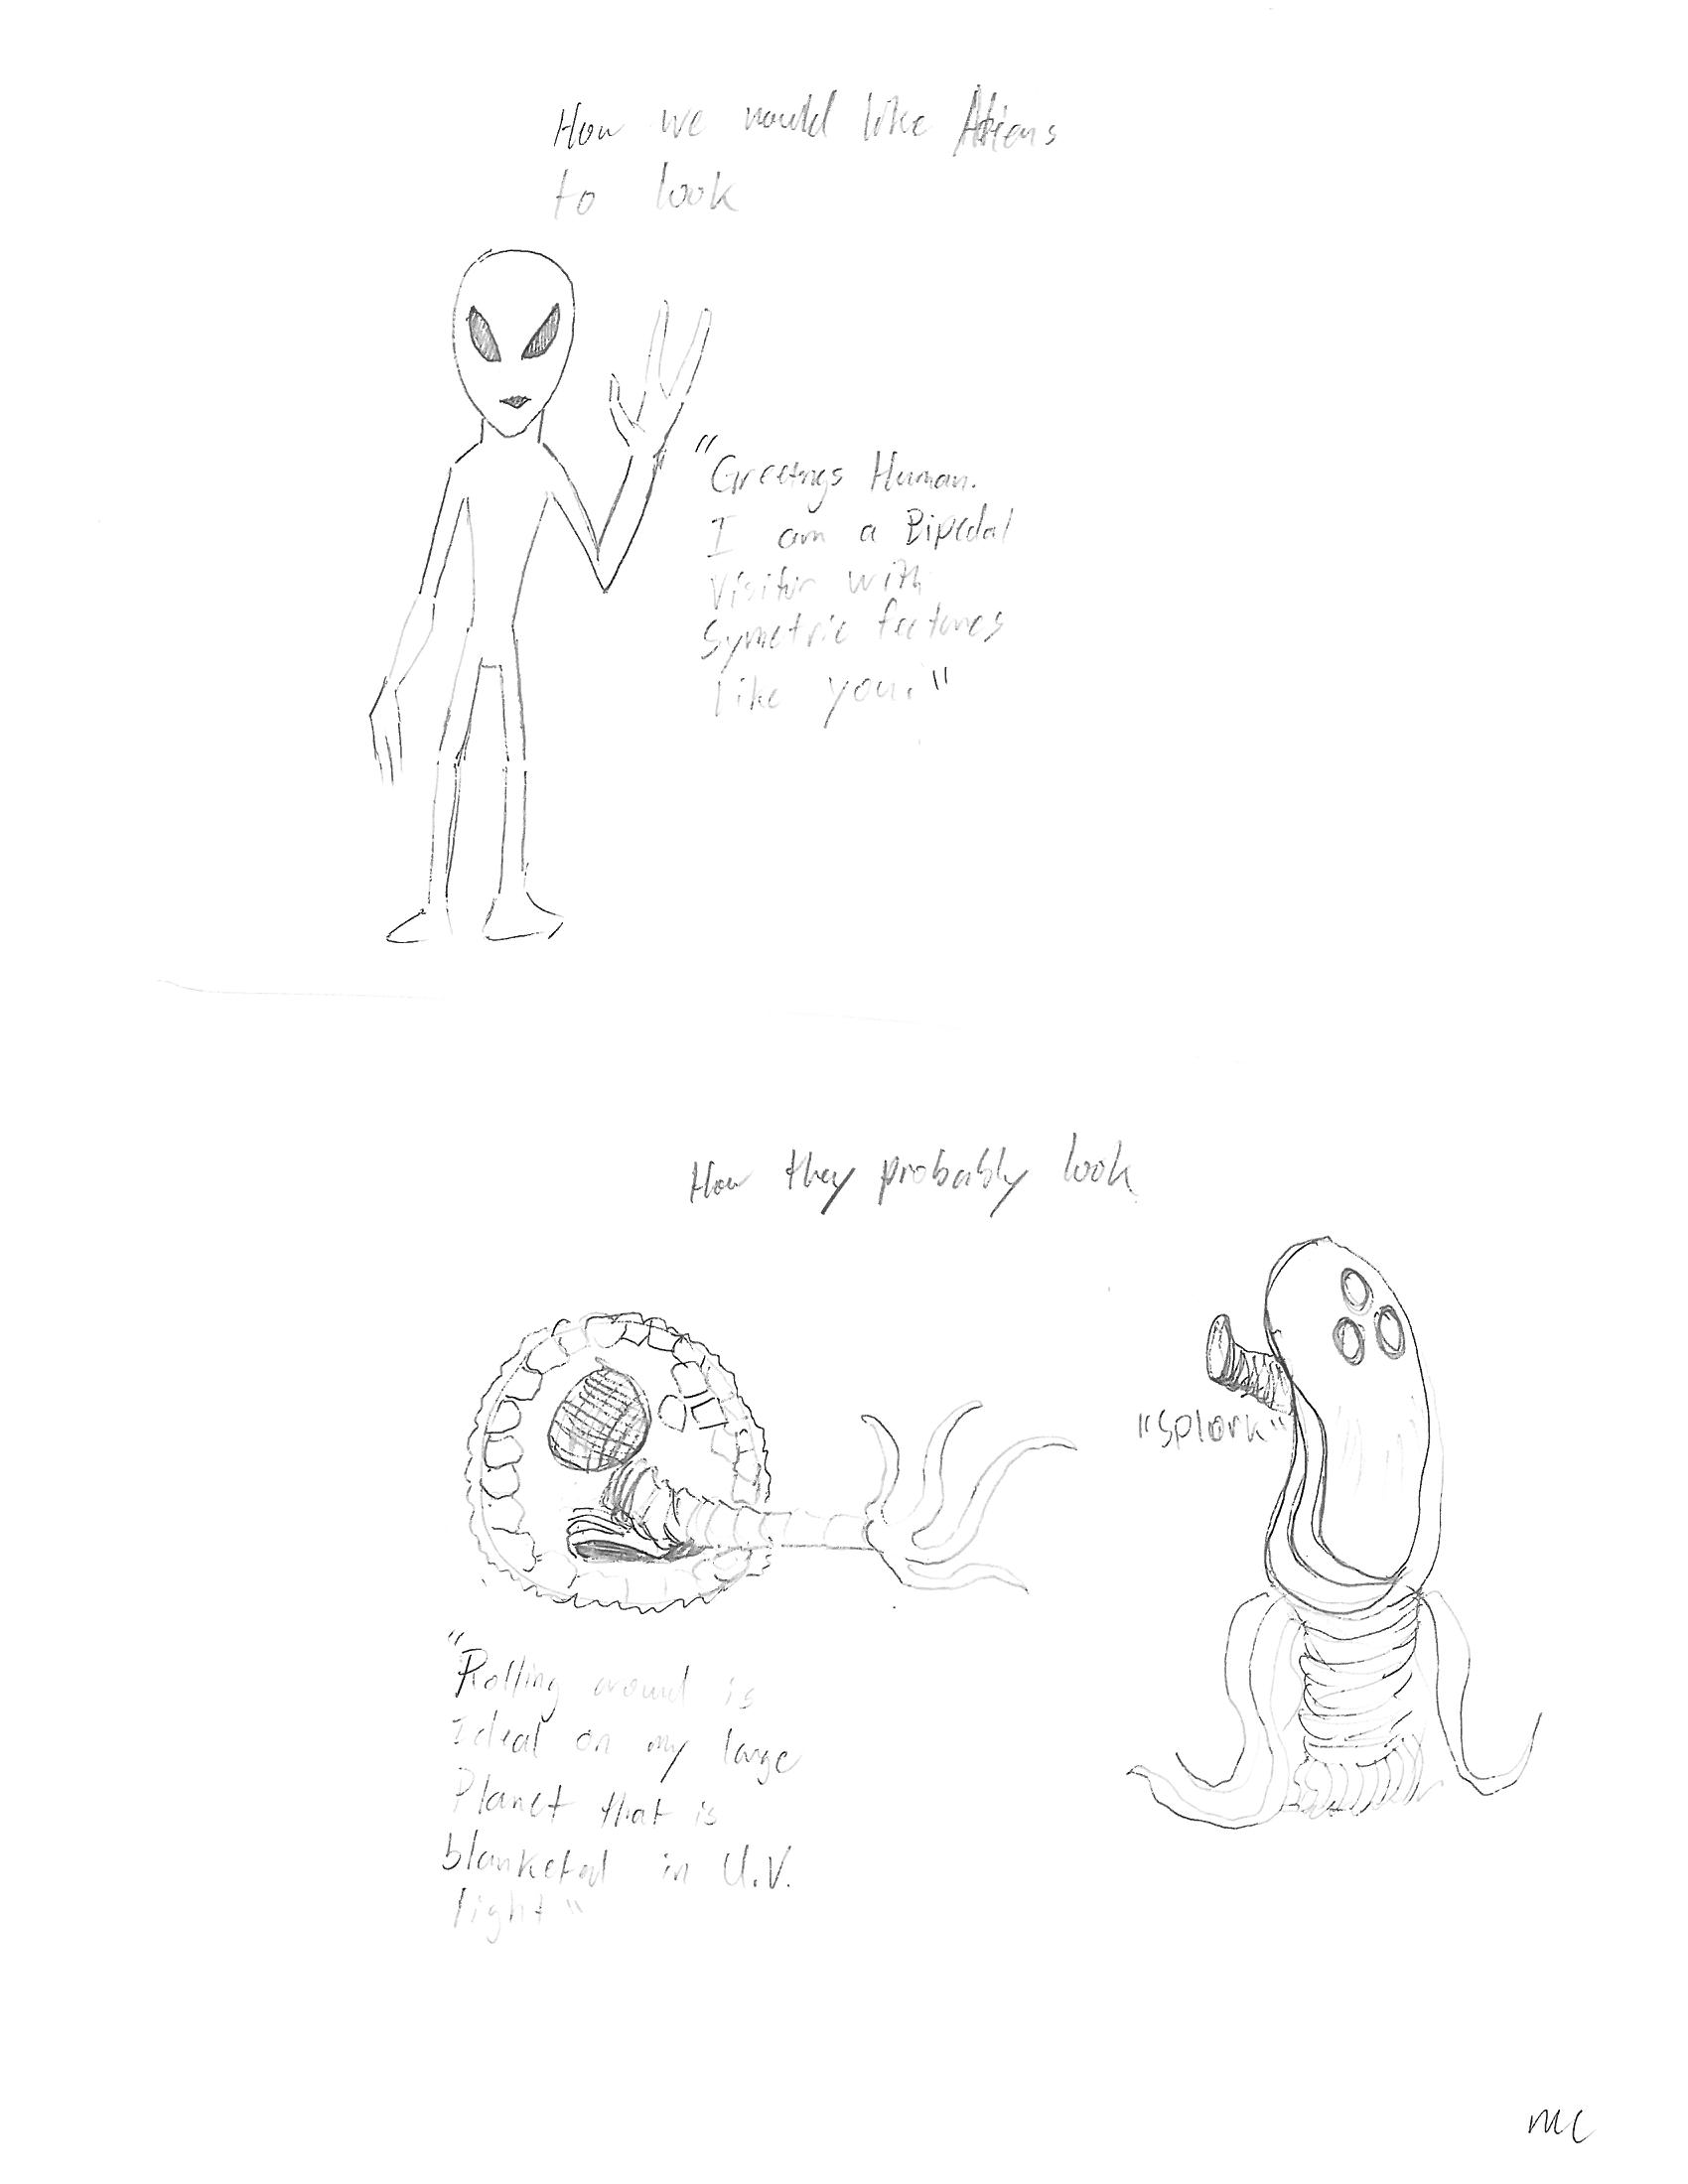 How we would like Aliens
to look
"Greetings Human.
I am a Bipedal
Visitor with
Symetric features
like you."
How they probably look
"Splork"
"Rolling around is
Ideal on my large
Planet that is
blanketed in U.V.
light"
MC